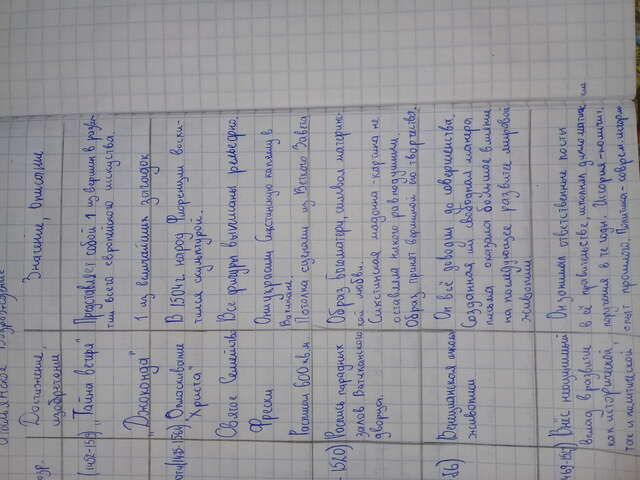 Достижение, изобретение
Значение, описание
"Тайна вечеря"
Представляет собой 1 из вершин в разви-
тии всего европейского искусства.
"Джоконда"
1 из величайших загадок
Оплакивание
"Христа"
В 1504 г. народ Флоренции восхи-
тился скульптурой.
Святое Семейство
Все фигуры выписаны рельефно.
Фрески
Сикстинскую капеллу в
Ватикане.
Росписи 600 кв.м
Потолка сценами из Ветхого Завета
1520)
Роспись парадных
залов Ватиканского
дворца.
Образ Богоматери, символ материнс-
кой любви.
Сикстинская мадонна - картина не
оставляет никого равнодушным.
Образ принят вершиной его творчества.
Венецианская школа
живописи
Он всё доводил до совершенства.
Созданная им свободная манера
письма оказала большое влияние
на последующее развитие мировой
живописи
Внёс неоценимый
вклад в развитие
как исторической,
так и политической
Он занимал ответственные посты
в её правительстве, исполнял дипломатические
поручения в те годы. История-политич.
опыт прошлого. Политика - соврем. истор